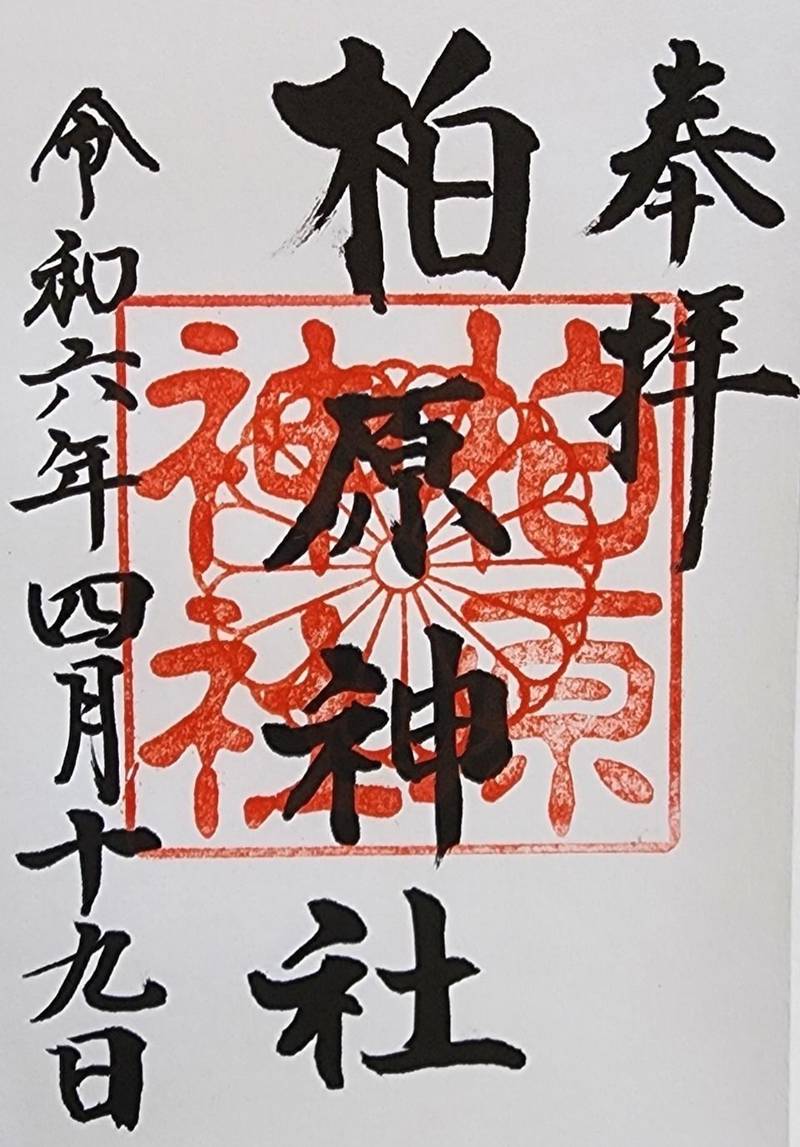 奉拝
柏原神社
柏原
神社
令和六年四月十九日